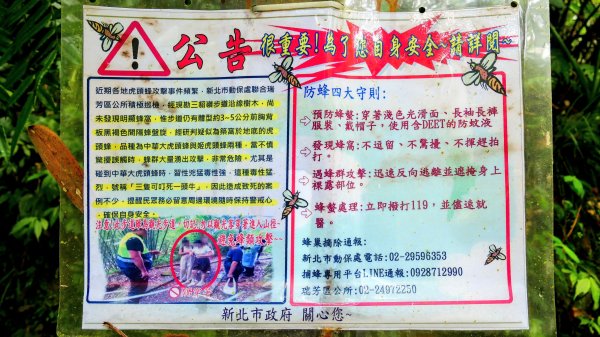 公告
很重要!為了您自身安全~請詳閱~
近期各地虎頭蜂攻擊事件頻繁,新北市動保處聯合瑞
芳區公所積極巡檢,經現勘三貂嶺步道沿線樹木,尚
未發現明顯蜂窩,惟步道仍有體型約3~5公分前胸背
板黑褐色開攔蜂盤旋,經研判疑似為築窩於地底的虎
頭蜂,品種為中華大虎頭蜂與姬虎頭蜂兩種,當不慎
驚擾誤觸時,蜂群大量湧出攻擊,非常危險。尤其是
碰到中華大虎頭蜂時,習性兇猛毒性強,這種毒性猛
烈,號稱「三隻可叮死一頭牛」,因此造成致死的案
例不少,提醒民眾務必留意周遭環境隨時保持警戒心
,確保自身安全。
防蜂四大守則:
預防蜂螫:穿著淺色光滑面、長袖長褲
服裝、戴帽子,使用含DEET的防蚊液
發現蜂窩:不逗留、不驚擾、不揮趕拍
打。
遇蜂群攻擊:迅速反向逃離並遮掩身上
裸露部位。
蜂螫處理:立即撥打119,並儘速就
醫。
蜂巢摘除通報:
新北市動保處電話:02-29596353
捕蜂專用平台LINE通報:0928712990
瑞芳區公所:02-24972250
新北市政府 關心您~